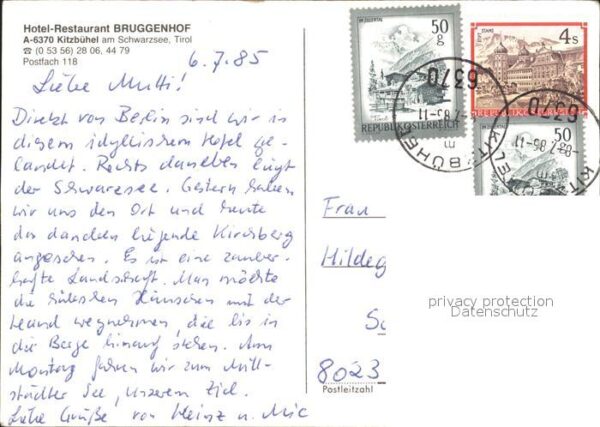 Hotel-Restaurant BRUGGENHOF
A-6370 Kitzbühel am Schwarzsee, Tirol
☎ (0 53 56) 28 06, 44 79
Postfach 118
6.7.85
Liebe Mutti!
Direkt von Berlin sind wir in
diesem idyllischen Hotel ge-
landet. Rechts daneben liegt
der Schwarzsee. Gestern haben
wir uns den Ort und heute
das daneben liegende Kirchberg
angesehen. Es ist eine zauber-
hafte Landschaft. Man möchte
die hübschen Häuschen mit der
Hand wegnehmen, die bis in
die Berge hinauf stehen. Am
Montag fahren wir zum Mill-
städter See, unserem Ziel.
Liebe Grüße von Heinz u. Mic
50
g
IM ZILLERTAL
Tirol
REPUBLIK ÖSTERREICH
STAMS
4s
50
6370
KITZBÜHEL
Frau
Hildeg
8023
Postleitzahl
privacy protection
Datenschutz